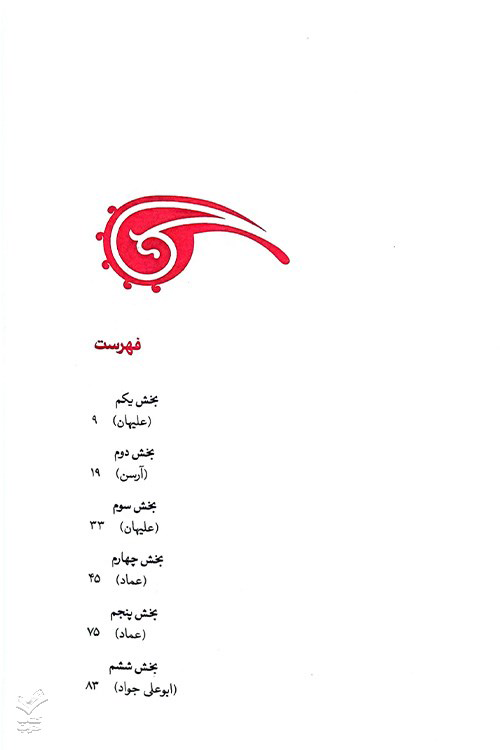 فهرست
بخش یکم
(علیهان) ۹
بخش دوم
(آرسن) ۱۹
بخش سوم
(علیهان) ۳۳
بخش چهارم
(عماد) ۴۵
بخش پنجم
(عماد) ۷۵
بخش ششم
(ابوعلی جواد) ۸۳